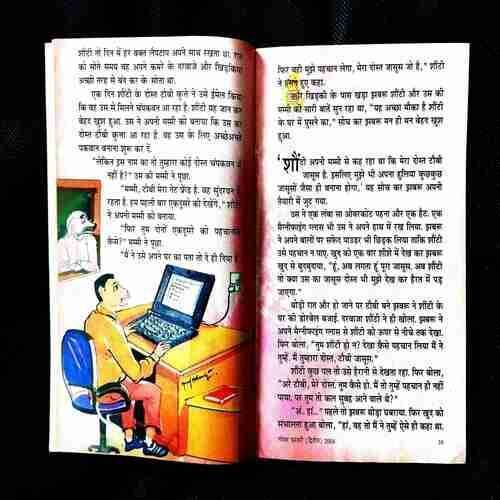 शौंटी तो दिन में हर वक्त लैपटाप अपने साथ रखता था. रात
को सोते समय वह अपने कमरे के दरवाजे और खिड़कियां
अच्छी तरह से बंद कर के सोता था.
एक दिन शौंटी के दोस्त टीवी कुत्ते ने उसे ईमेल किया
कि वह उस से मिलने चंपकवन आ रहा है. शौंटी यह जान कर
बेहद खुश हुआ. उस ने अपनी मम्मी को बताया कि उस का
दोस्त टीवी कुत्ता आ रहा है. वह उस के लिए अच्छेअच्छे
पकवान बनाना शुरू कर दें.
"लेकिन इस नाम का तो तुम्हारा कोई दोस्त चंपकवन में
नहीं है?" उस की मम्मी ने पूछा.
"मम्मी, टीवी मेरा नेट फ्रेंड है. वह सुंदरवन में
रहता है. हम पहली बार एकदूसरे को देखेंगे," शौंटी
ने अपनी मम्मी को बताया.
"फिर तुम दोनों एकदूसरे को पहचानोगे
कैसे?" मम्मी ने पूछा.
"मैं ने उसे अपने घर का पता तो दे ही दिया है.
फिर वही मुझे पहचान लेगा, मेरा दोस्त जासूस जो है," शौंटी
ने हंसते हुए कहा.
उधर खिड़की के पास खड़ा झबरू शौंटी और उस की
मम्मी की सारी बातें सुन रहा था, "यह अच्छा मौका है शौंटी
के घर में घुसने का," सोच कर झबरू मन ही मन बेहद खुश
हुआ.
'शौंटी अपनी मम्मी से कह रहा था कि मेरा दोस्त टीवी
जासूस है. इसलिए मुझे भी अपना हुलिया कुछकुछ
जासूसों जैसा ही बनाना होगा,' यह सोच कर झबरू अपनी
तैयारी में जुट गया.
उस ने एक लंबा सा ओवरकोट पहना और एक हैट. एक
मैग्नीफाइंग ग्लास भी उस ने अपने हाथ में रख लिया. झबरू
ने अपने बालों पर सफेद पाउडर भी छिड़क लिया ताकि शौंटी
उसे पहचान न पाए. खुद को एक बार शीशे में देख कर झबरू
खुद से बुदबुदाया, "हूं, अब लगता हूं पूरा जासूस. अब शौंटी
तो क्या उस का जासूस दोस्त भी मुझे देख कर हैरत में पड़
जाएगा."
थोड़ी रात और हो जाने पर टीवी बने झबरू ने शौंटी के
घर की डोरबेल बजाई. दरवाजा शौंटी ने ही खोला. झबरू ने
अपने मैग्नीफाइंग ग्लास से शौंटी को ऊपर से नीचे तक देखा.
फिर बोला, "तुम शौंटी हो न? देखा कैसे पहचान लिया मैं ने
तुम्हें. मैं तुम्हारा दोस्त, टीवी जासूस."
शौंटी कुछ पल तो उसे हैरानी से देखता रहा. फिर बोला,
"अरे टीवी, मेरे दोस्त. तुम कैसे हो. मैं तो तुम्हें पहचान ही नहीं
पाया. पर तुम तो कल सुबह आने वाले थे?"
"अं, हां..." पहले तो झबरू थोड़ा घबराया. फिर खुद को
संभालता हुआ बोला, "हां, वह तो मैं ने तुम्हें ऐसे ही कहा था.
(द्वितीय) 2004